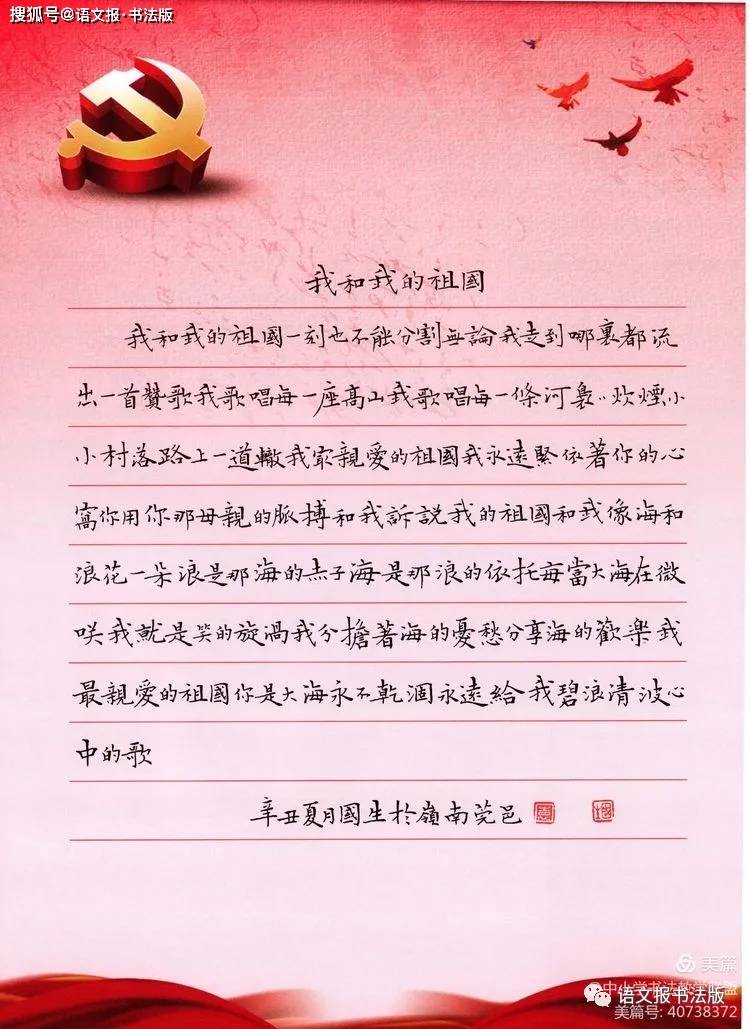 搜狐号@语文报·书法版
我和我的祖國
我和我的祖國一刻也不能分割無論我走到哪裏都流
出一首贊歌我歌唱每一座高山我歌唱每一條河裊〻炊煙小
小村落路上一道轍我家親愛的祖國我永遠緊依著你的心
窩你用你那母親的脈搏和我訴説我的祖國和我像海和
浪花一朵浪是那海的赤子海是那浪的依托每當大海在微
咲我就是笑的旋渦我分擔著海的憂愁分享海的歡樂我
最親愛的祖國你是大海永不乾涸永遠給我碧浪清波心
中的歌
辛丑夏月國生於嶺南莞邑
美篇
中小学书法教学联盟
语文报书法版
美篇号: 40738372